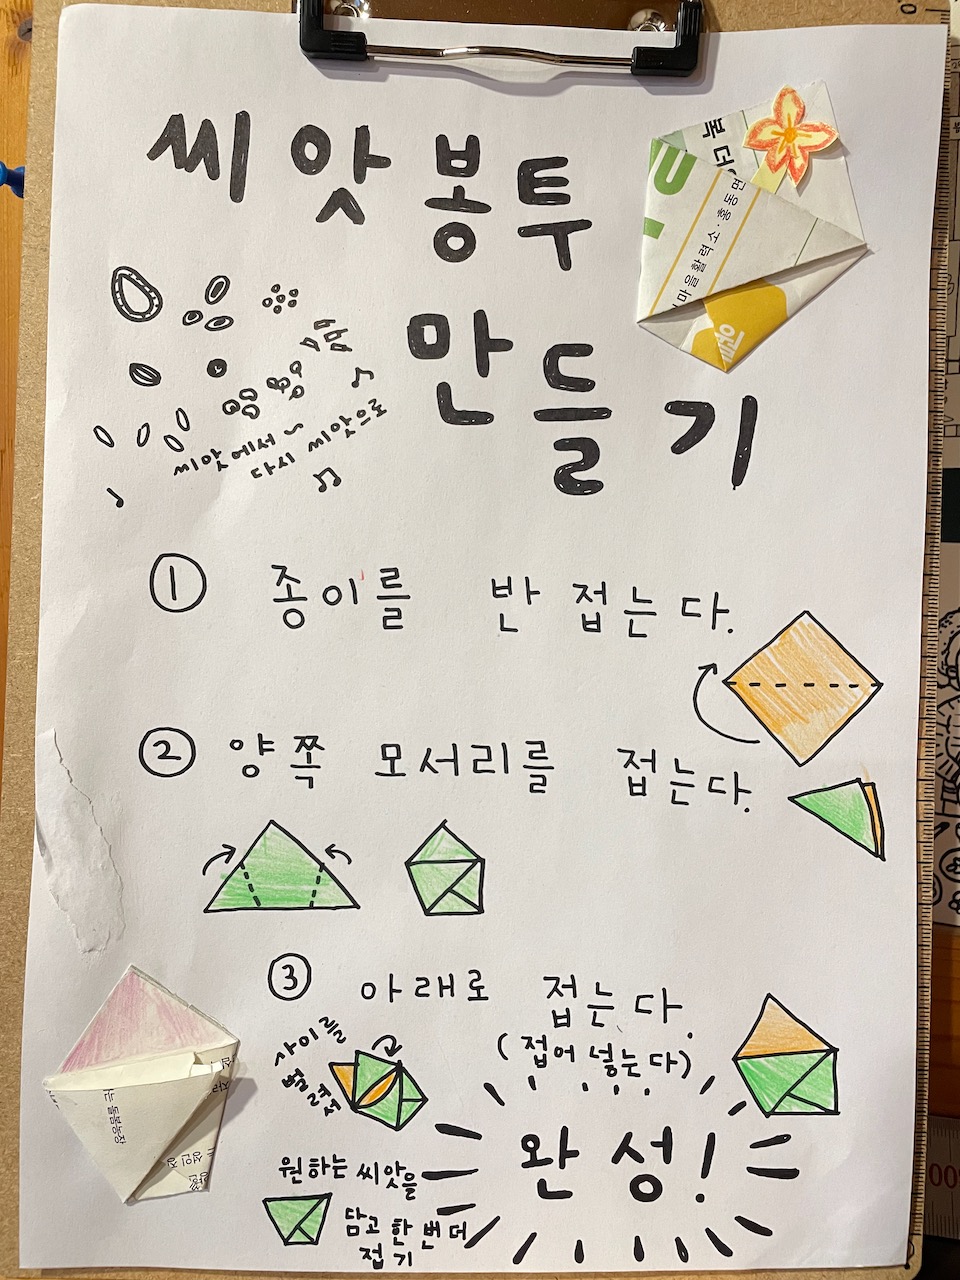 씨앗봉투
만들기
복 더
마을활력소·홍동면
씨앗에서~
다시 씨앗으로
① 종이를 반 접는다.
② 양쪽 모서리를 접는다.
③ 아래로 접는다.
(접어 넣는다)
사이를
벌려서
완성!
원하는 씨앗을
담고 한번더
접기
는 돌봄농장